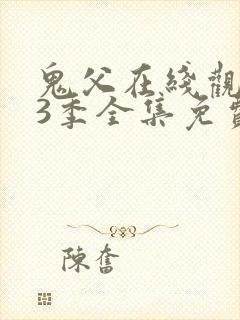 鬼父在綫觀
3季全集免費
陳奮